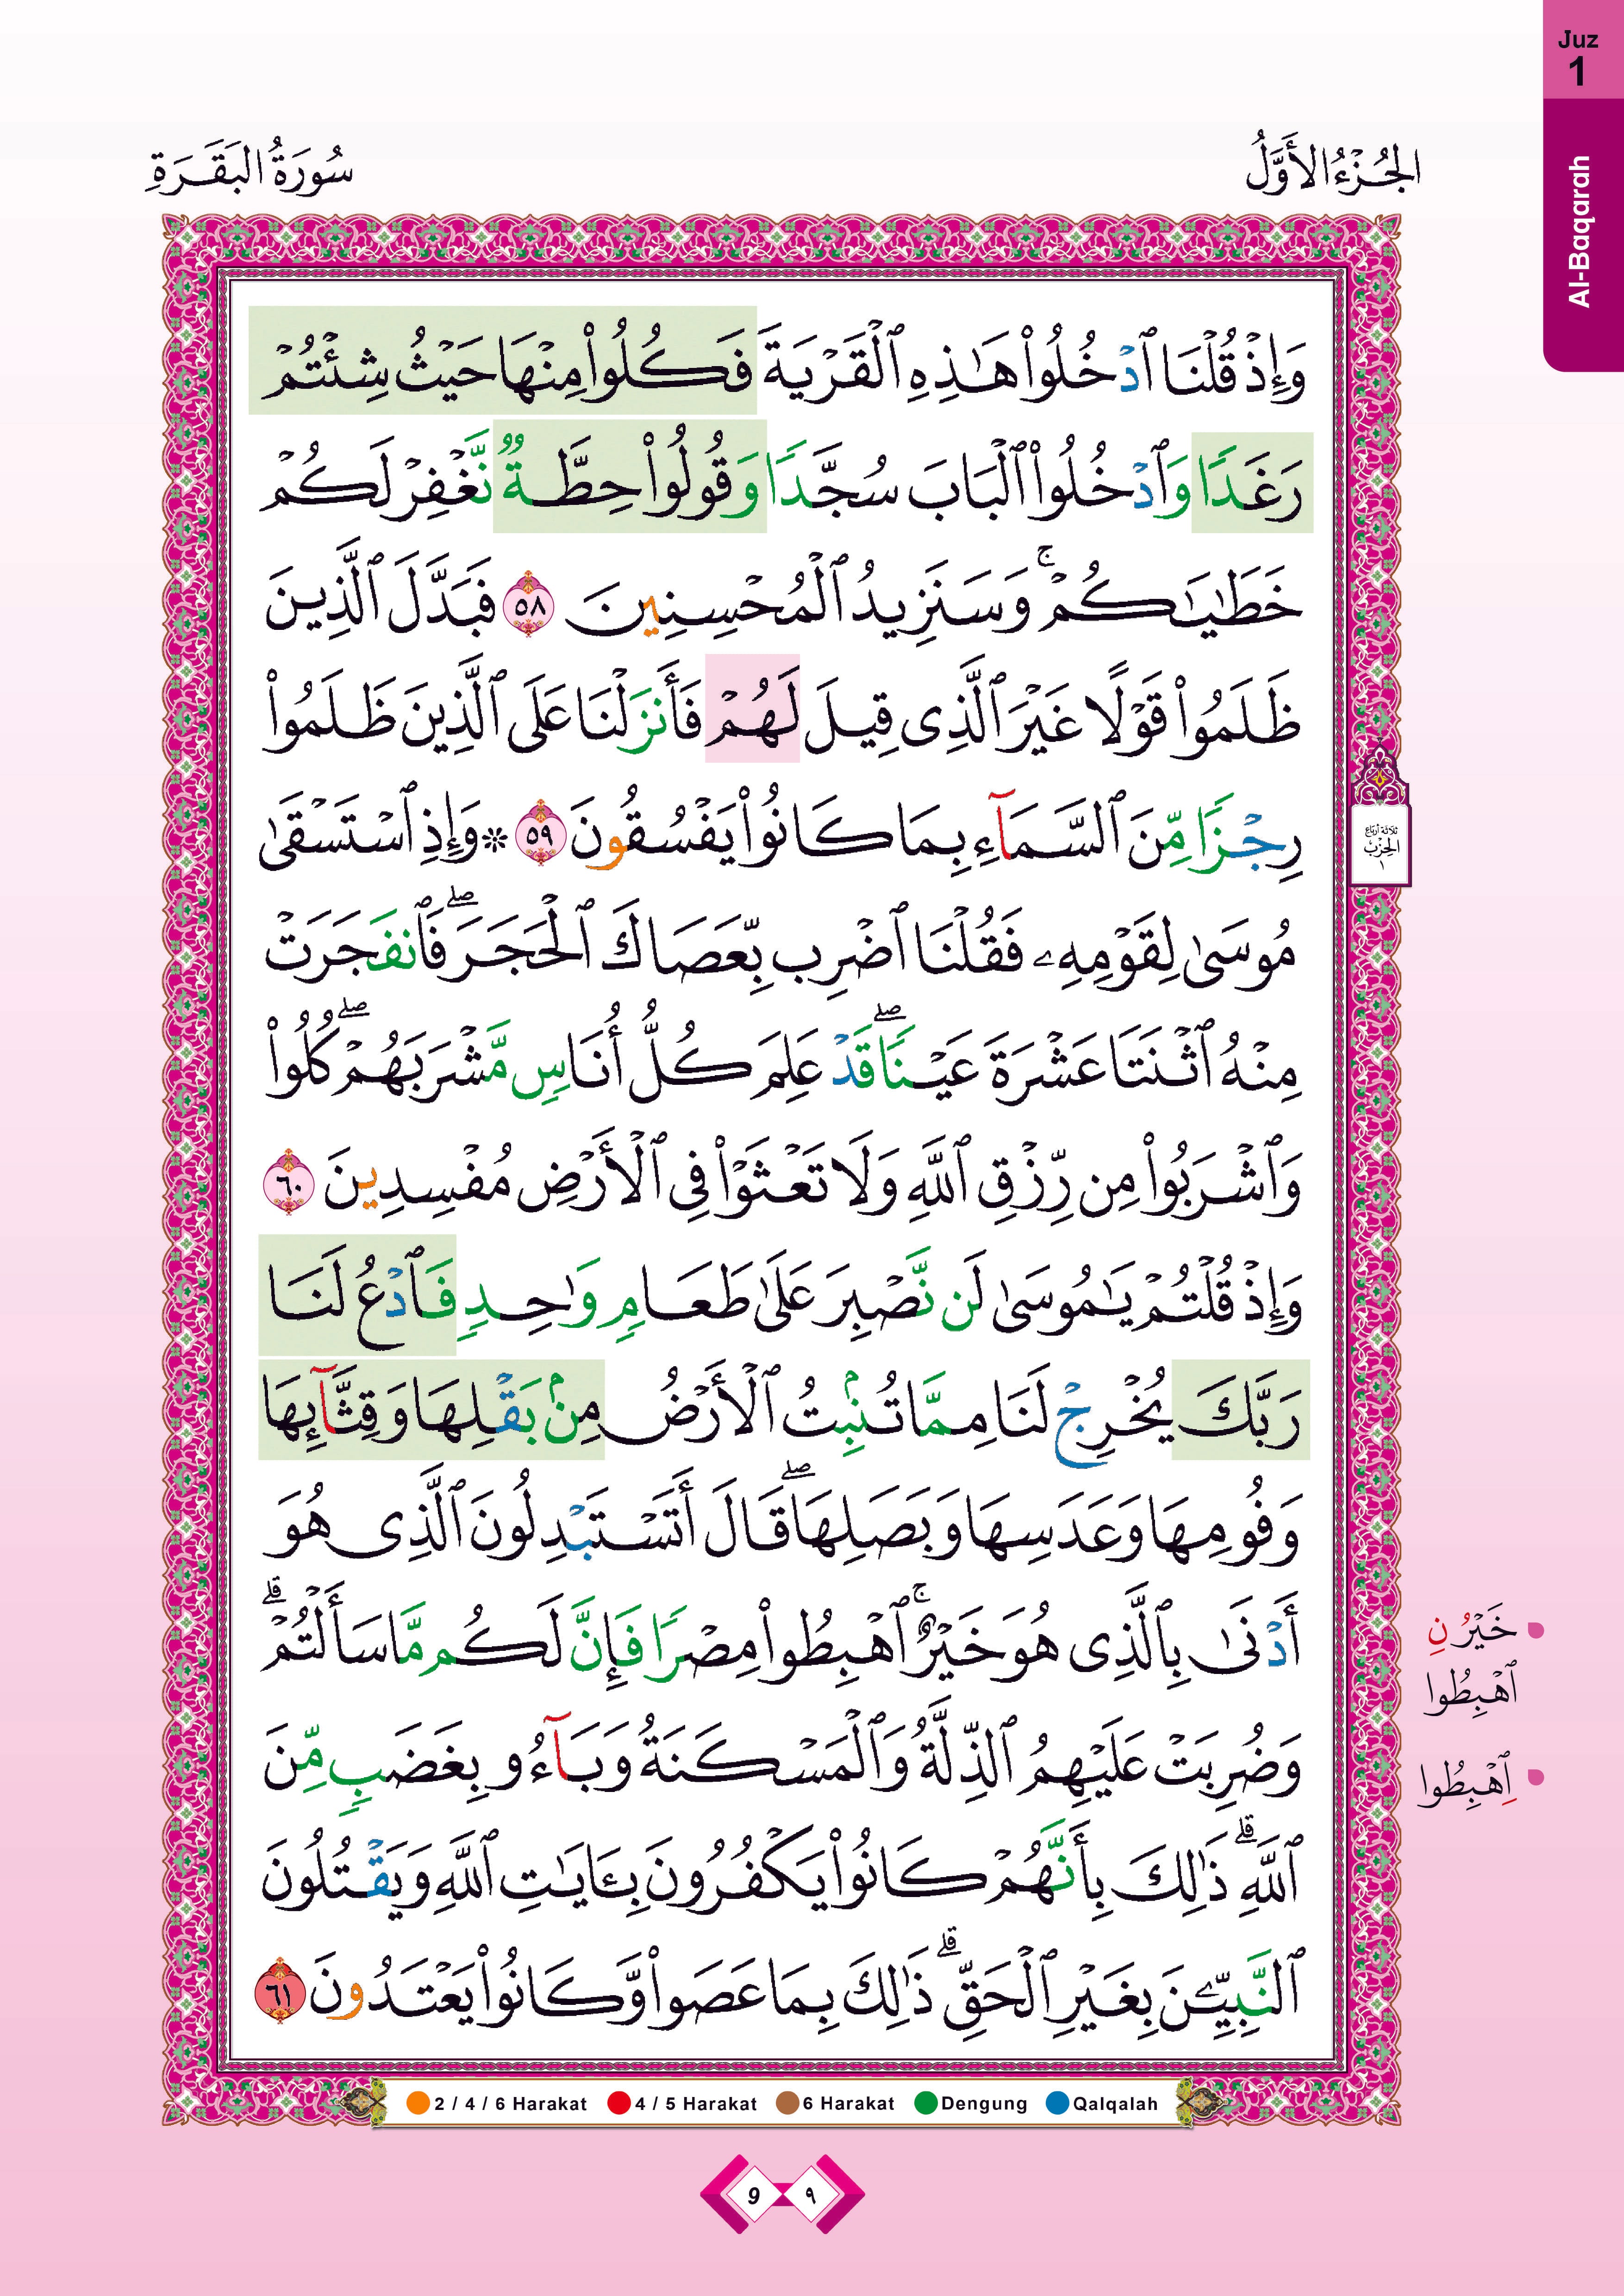 Juz
1
Al-Baqarah
الجُزْءُ الأَوَّلُ
سُورَةُ البَقَرَةِ
وَإِذْ قُلْنَا ٱدْخُلُوا۟ هَـٰذِهِ ٱلْقَرْيَةَ فَكُلُوا۟ مِنْهَا حَيْثُ شِئْتُمْ
رَغَدًا وَٱدْخُلُوا۟ ٱلْبَابَ سُجَّدًا وَقُولُوا۟ حِطَّةٌ نَّغْفِرْ لَكُمْ
خَطَـٰيَـٰكُمْ ۚ وَسَنَزِيدُ ٱلْمُحْسِنِينَ ٥٨ فَبَدَّلَ ٱلَّذِينَ
ظَلَمُوا۟ قَوْلًا غَيْرَ ٱلَّذِى قِيلَ لَهُمْ فَأَنزَلْنَا عَلَى ٱلَّذِينَ ظَلَمُوا۟
رِجْزًا مِّنَ ٱلسَّمَآءِ بِمَا كَانُوا۟ يَفْسُقُونَ ٥٩ ۞ وَإِذِ ٱسْتَسْقَىٰ
ثلاثة أرباع
الحِزْب
١
مُوسَىٰ لِقَوْمِهِۦ فَقُلْنَا ٱضْرِب بِّعَصَاكَ ٱلْحَجَرَ ۖ فَٱنفَجَرَتْ
مِنْهُ ٱثْنَتَا عَشْرَةَ عَيْنًا ۖ قَدْ عَلِمَ كُلُّ أُنَاسٍ مَّشْرَبَهُمْ ۖ كُلُوا۟
وَٱشْرَبُوا۟ مِن رِّزْقِ ٱللَّهِ وَلَا تَعْثَوْا۟ فِى ٱلْأَرْضِ مُفْسِدِينَ ٦٠
وَإِذْ قُلْتُمْ يَـٰمُوسَىٰ لَن نَّصْبِرَ عَلَىٰ طَعَامٍ وَٰحِدٍ فَٱدْعُ لَنَا
رَبَّكَ يُخْرِجْ لَنَا مِمَّا تُنۢبِتُ ٱلْأَرْضُ مِنۢ بَقْلِهَا وَقِثَّآئِهَا
وَفُومِهَا وَعَدَسِهَا وَبَصَلِهَا ۖ قَالَ أَتَسْتَبْدِلُونَ ٱلَّذِى هُوَ
أَدْنَىٰ بِٱلَّذِى هُوَ خَيْرٌ ۚ ٱهْبِطُوا۟ مِصْرًا فَإِنَّ لَكُم مَّا سَأَلْتُمْ ۗ
خَيْرُ نِ
ٱهْبِطُوا
وَضُرِبَتْ عَلَيْهِمُ ٱلذِّلَّةُ وَٱلْمَسْكَنَةُ وَبَآءُو بِغَضَبٍ مِّنَ
اِهْبِطُوا
ٱللَّهِ ۗ ذَٰلِكَ بِأَنَّهُمْ كَانُوا۟ يَكْفُرُونَ بِـَٔايَـٰتِ ٱللَّهِ وَيَقْتُلُونَ
ٱلنَّبِيِّـۧنَ بِغَيْرِ ٱلْحَقِّ ۗ ذَٰلِكَ بِمَا عَصَوا۟ وَّكَانُوا۟ يَعْتَدُونَ ٦١
2 / 4 / 6 Harakat 4 / 5 Harakat 6 Harakat Dengung Qalqalah
9 ٩